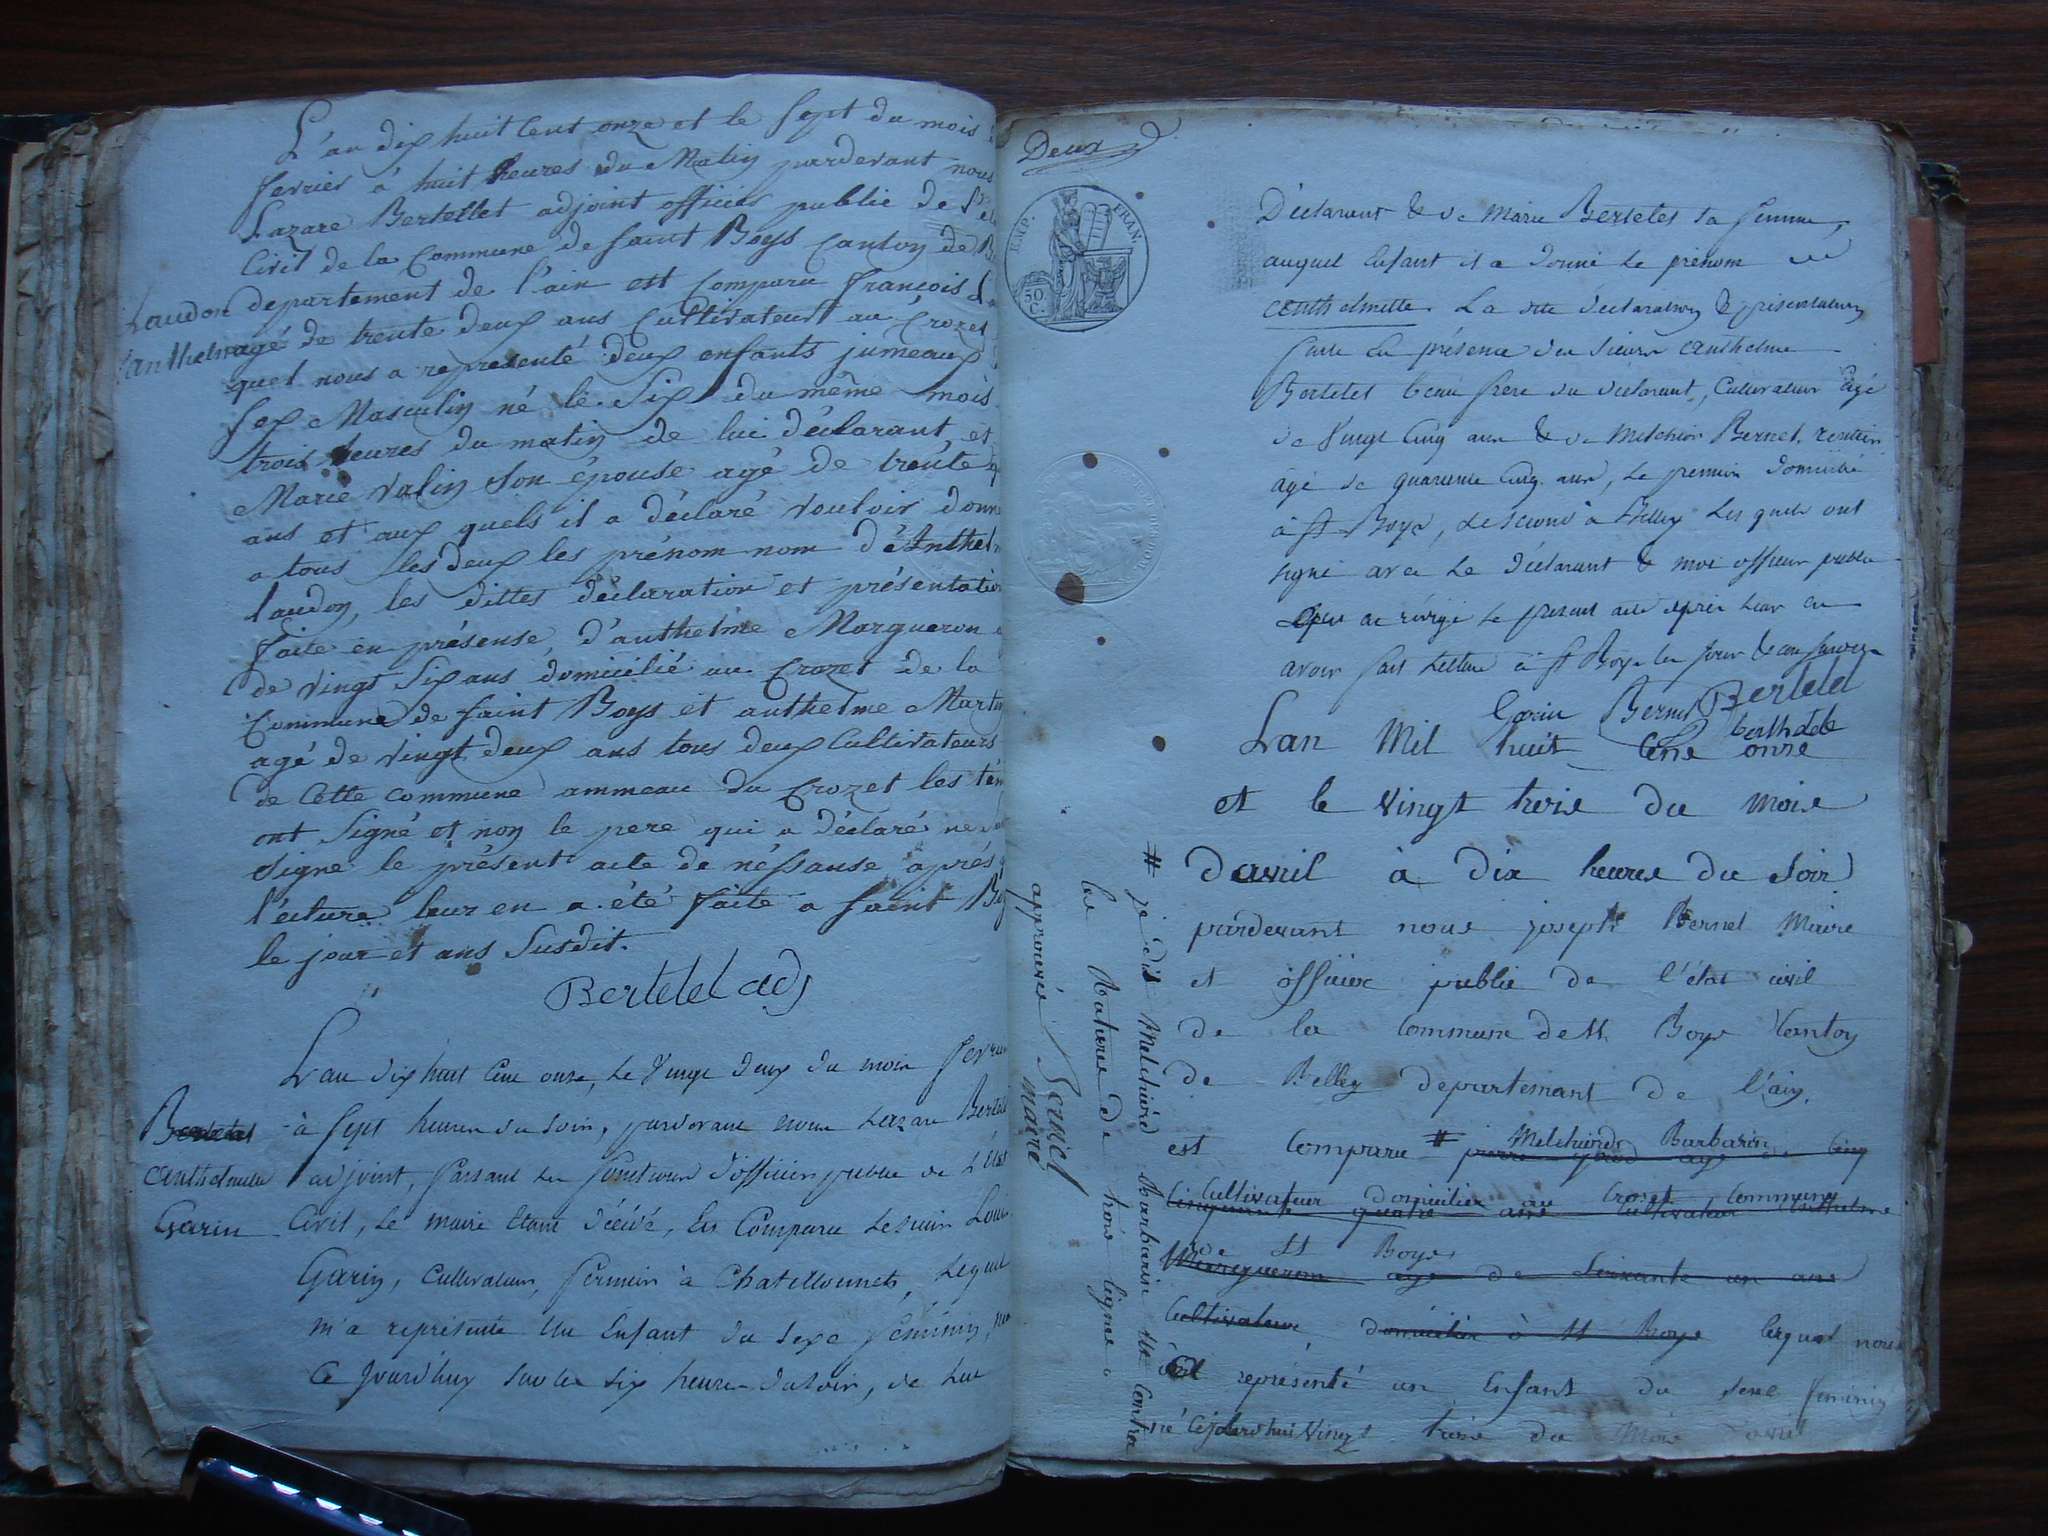 L'an dix huit Cent onze et le Sept du mois
fevrier à huit heures du Matin pardevant nous
Lazare Bertellet adjoint officier public de
Civil de la Commune de Saint Boys Canton de
Laudon departement de l'ain est Comparu françois
Anthelm agé de trente deux ans Cultivateur au Crozet
quel nous a representé deux enfants jumeaux
sex Masculin né le Six du même mois
trois heures du matin de lui déclarant, et
Marie Valin Son épouse agé de trente
ans et aux quels il a déclaré vouloir donn
a tous les deux les prénom nom d'Anthel
laudon, les dittes déclaration et présentation
faite en présense, d'anthelme Margueron
de vingt Six ans domicilié au Crozet de la
Commune de Saint Boys et anthelme Martin
agé de vingt deux ans tous deux Cultivateurs
de Cette commune ammeau du Crozet les tém
ont Signé et non le pere qui a déclaré ne
Signe le présent acte de néssanse après
l'ecture leur en a été faite a Saint Boy
le jour et ans Susdit.
Bertelet adj
L'an dix huit Cent onze, le Vingt deux du mois fevrier
à Sept heures du soir, pardevant nous Lazare Bertelet
Anthelmette adjoint, faisant les fonctions d'officier public de l'Etat
Garin Civil, le maire Etant décédé, Est Comparu Le sieur Louis
Garin, Cultivateur, fermier à Chatillonnet, Lequel
m'a représenté Un Enfant du Sexe féminin, né
Ce Jourd'huy sur les six heures du soir, de Lui
Deux
EMP. FRAN.
50 C.
Déclarant & de Marie Bertelet sa femme,
auquel Enfant il a donné le prénom
Anthelmette. La dite déclaration & présentation
faite En présence du sieur Anthelme
Bertelet beau frere du déclarant, Cultivateur âgé
de Vingt Cinq ans & de Melchior Bernel, rentier
âgé de quarante Cinq ans, le premier domicilié
à St Boys, le second à Belley Les quels ont
signé avec le déclarant & moi officier public
qui ai rédigé le present acte après leur en
avoir fait lecture à St Boys les jour & an susdits
Garin Bernel Bertelet
Lan Mil huit Cens onze
et le Vingt trois du mois
d'avril à dix heures du Soir
pardevant nous joseph Bernel Maire
et officier public de l'état civil
de la Commune de St. Boys Canton
de Belley departemant de l'ain,
est Comparu # Melchiord Barbarin
pierre âgé de Cinq
Cultivateur domicilié au Crozet Commune
Cinquante quatre ans Cultivateur Anthelme
de St Boys
Margueron agé de Soixante un ans
Cultivateur domicilié à St Boys lequel nous
ont représenté un Enfant du Sexe feminin
né Cejourd'hui Vingt trois du Mois d'avril
# je dit Melchiord Barbarin Et Contre
les Rature de trois lignes
approuvée Bernel
maire